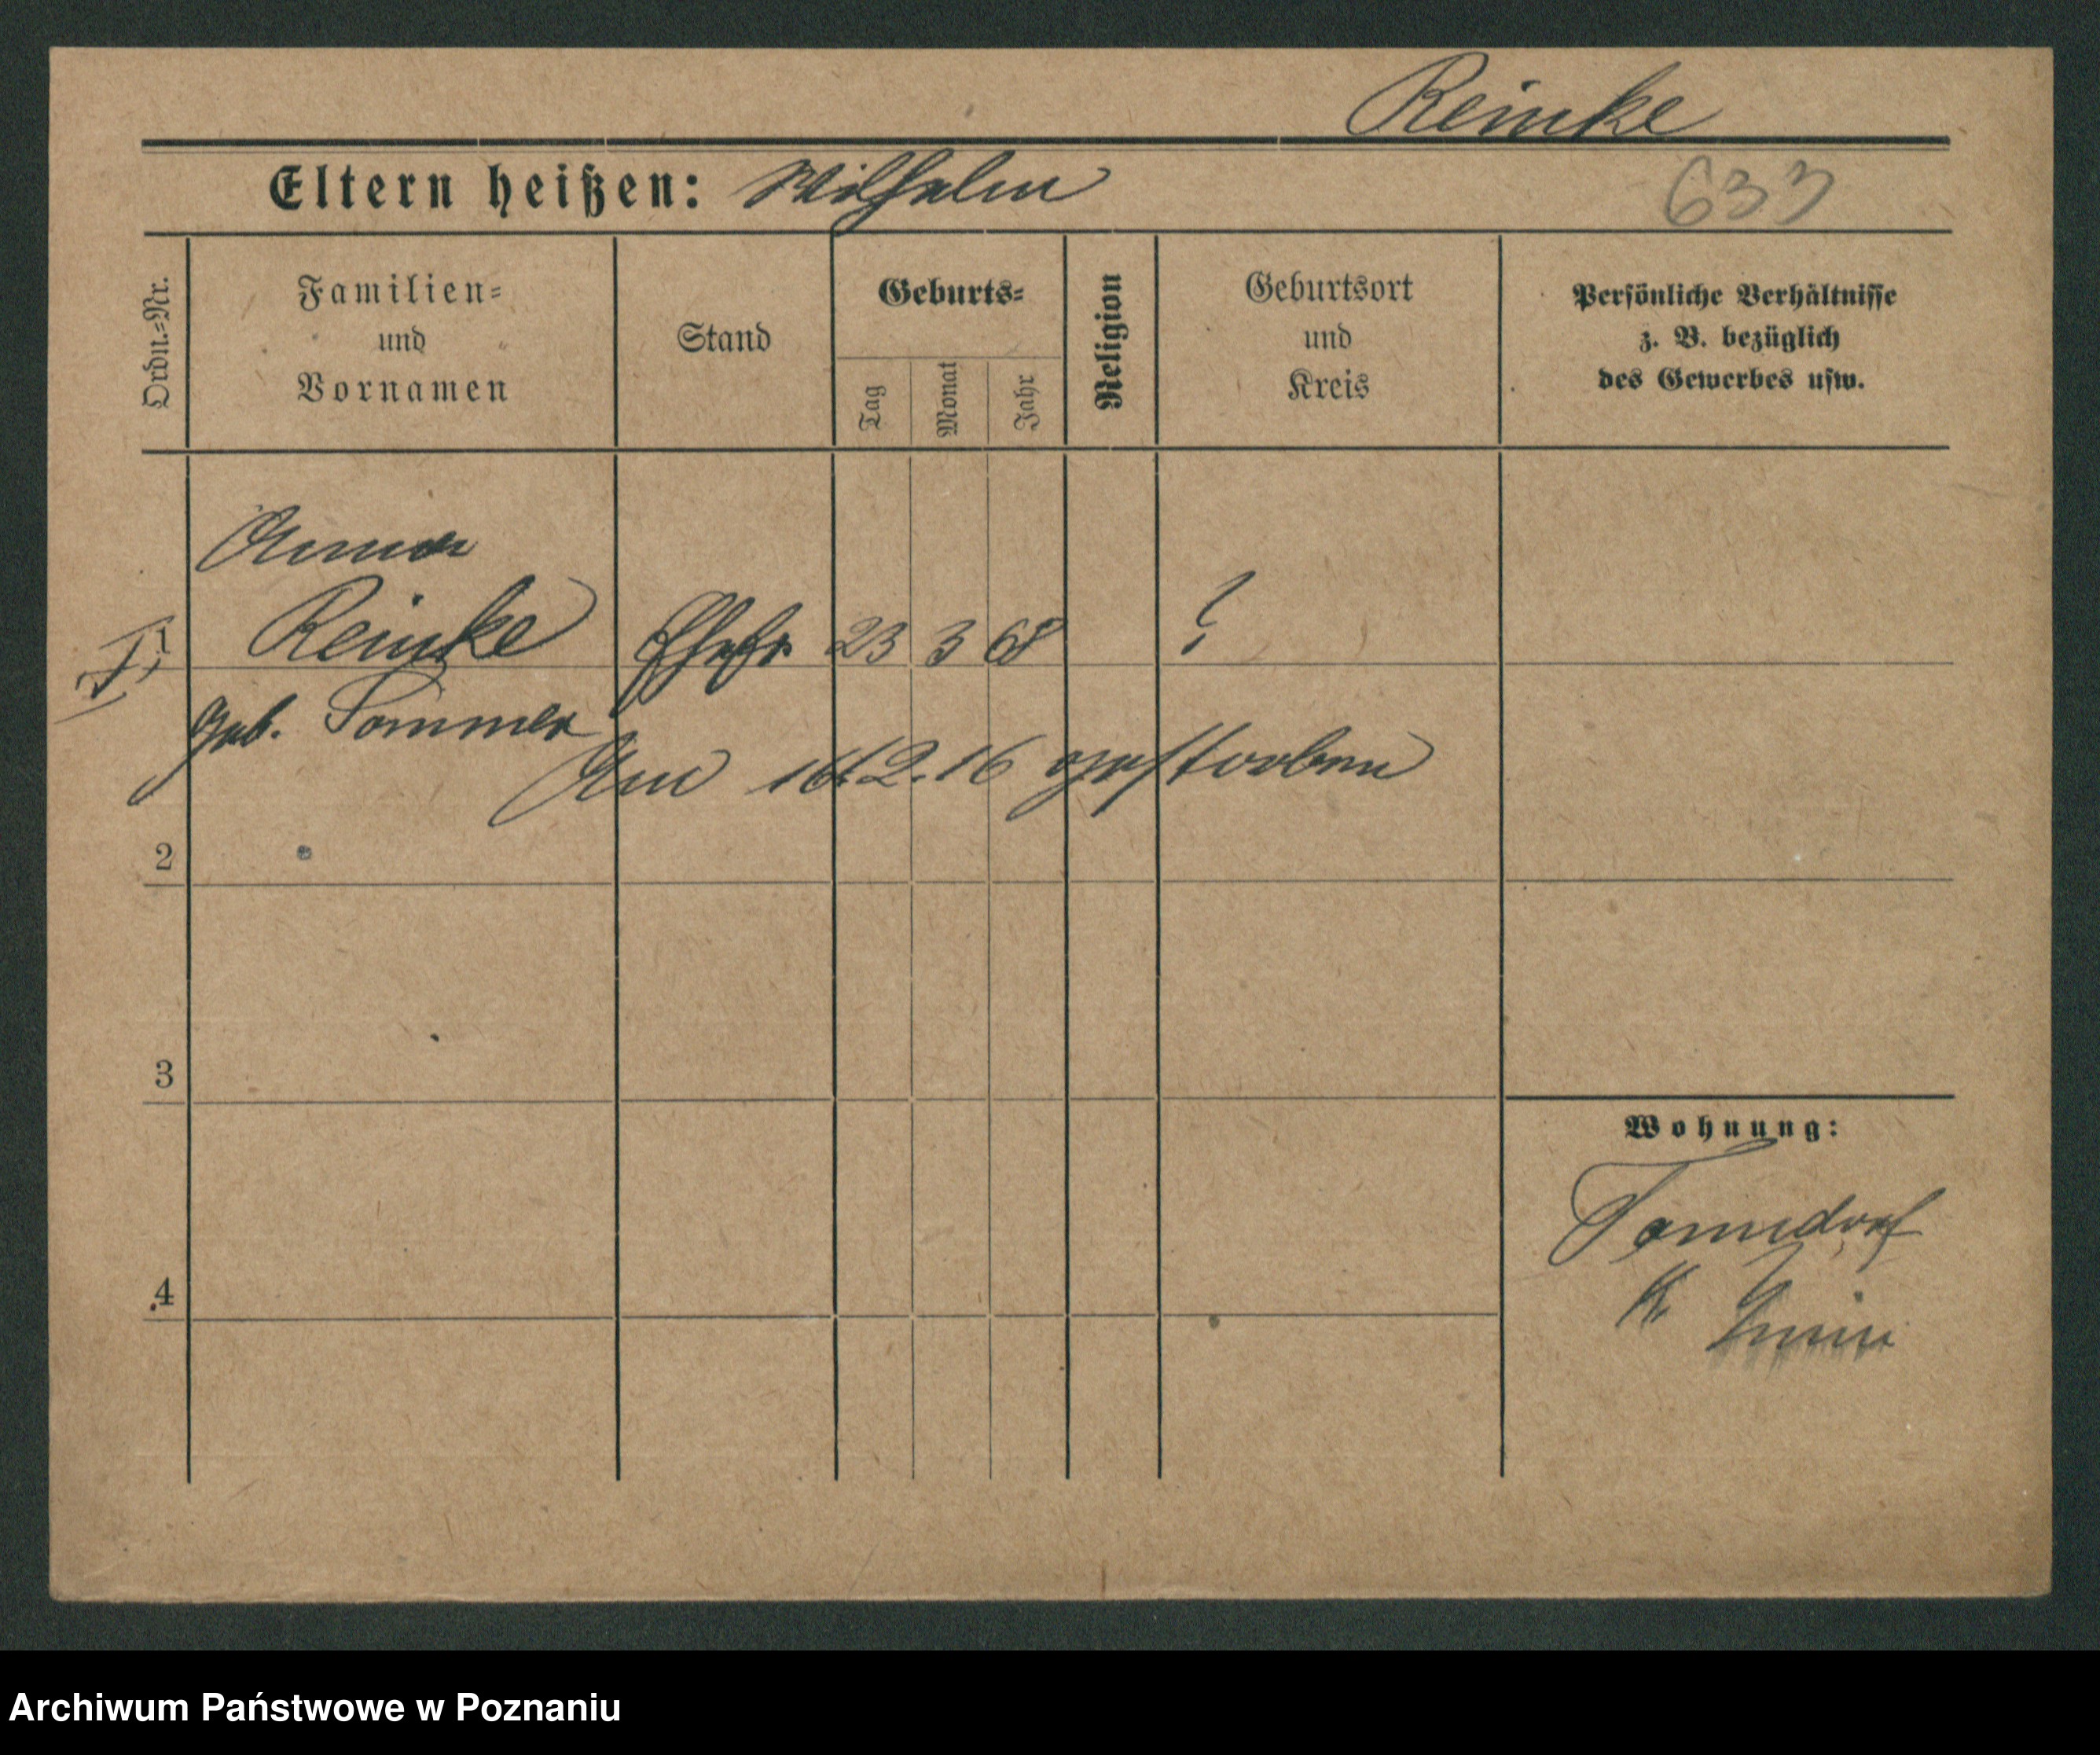 Reinke
Eltern heißen: Wilhelm
633
Ordn.=Nr.
Familien=
und
Vornamen
Stand
Geburts=
Tag
Monat
Jahr
Religion
Geburtsort
und
Kreis
Persönliche Verhältnisse
z. B. bezüglich
des Gewerbes usw.
Anna
1 Reinke Ehefr 23 3 68 ?
geb. Sommer
Am 12.16 gestorben
2
3
4
Wohnung:
K. Znin
Archiwum Państwowe w Poznaniu